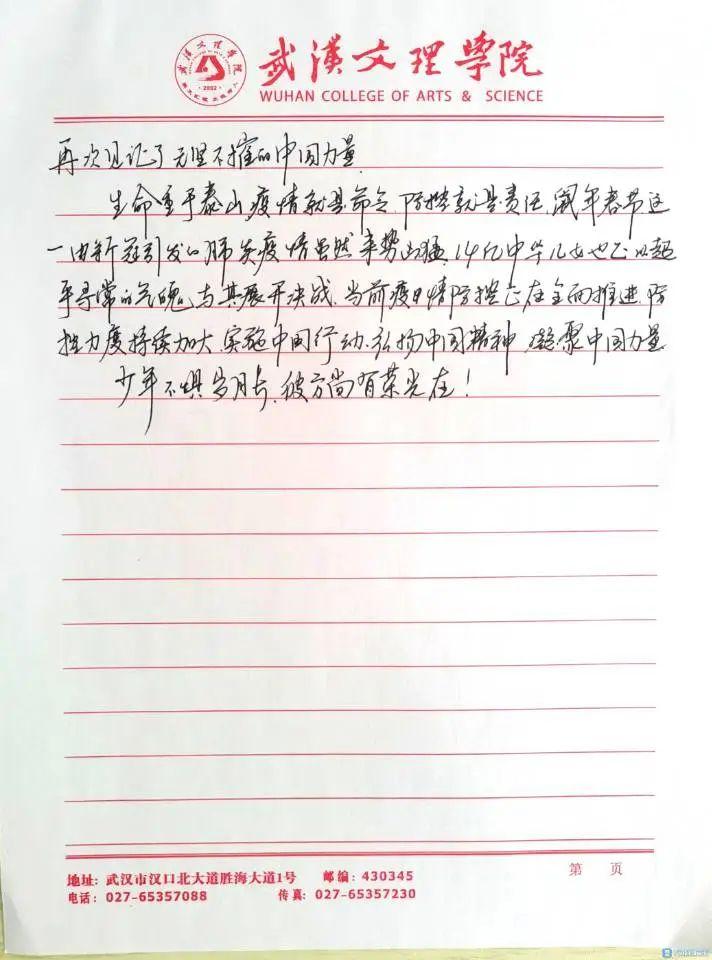 武漢文理學院
WUHAN COLLEGE OF ARTS & SCIENCE
2002
再次见证了无坚不摧的中国力量.
生命重于泰山,疫情就是命令,防控就是责任,鼠年春节这
一由新冠引发的肺炎疫情虽然来势凶猛,14亿中华儿女也正以超
乎寻常的气魄与其展开决战.当前疫情防控正在全面推进,防
控力度持续加大,实施中国行动,弘扬中国精神,凝聚中国力量
少年不惧岁月长,彼方尚有荣光在!
地址: 武汉市汉口北大道胜海大道1号 邮编: 430345
第 页
电话: 027-65357088 传真: 027-65357230